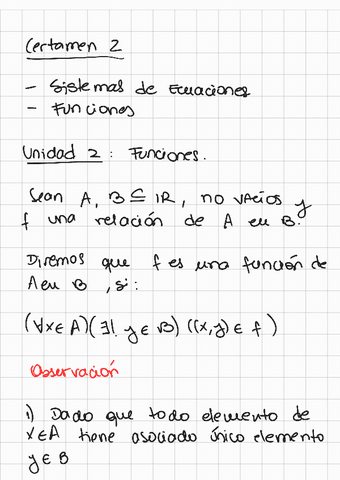 Certamen 2
- Sistemas de Ecuaciones
- Funciones
Unidad 2 : Funciones.
Sean A, B ⊆ IR, no vacíos y
f una relación de A en B.
Diremos que f es una función de
A en B, si:
(∀x∈A)(∃! y∈B)((x,y)∈ f)
Observación
1) Dado que todo elemento de
x∈A tiene asociado único elemento
y∈B